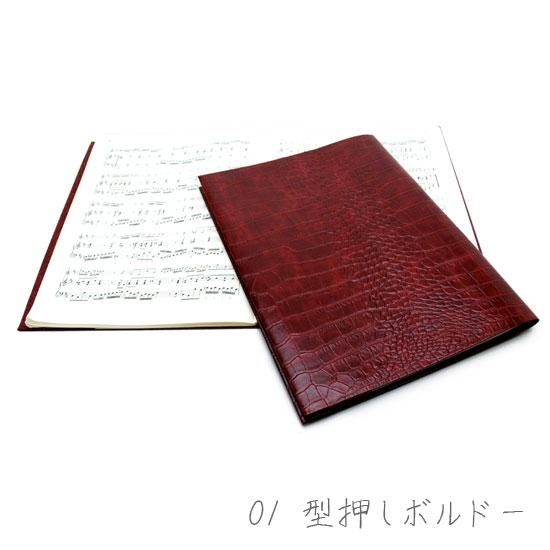 01 型押しボルドー